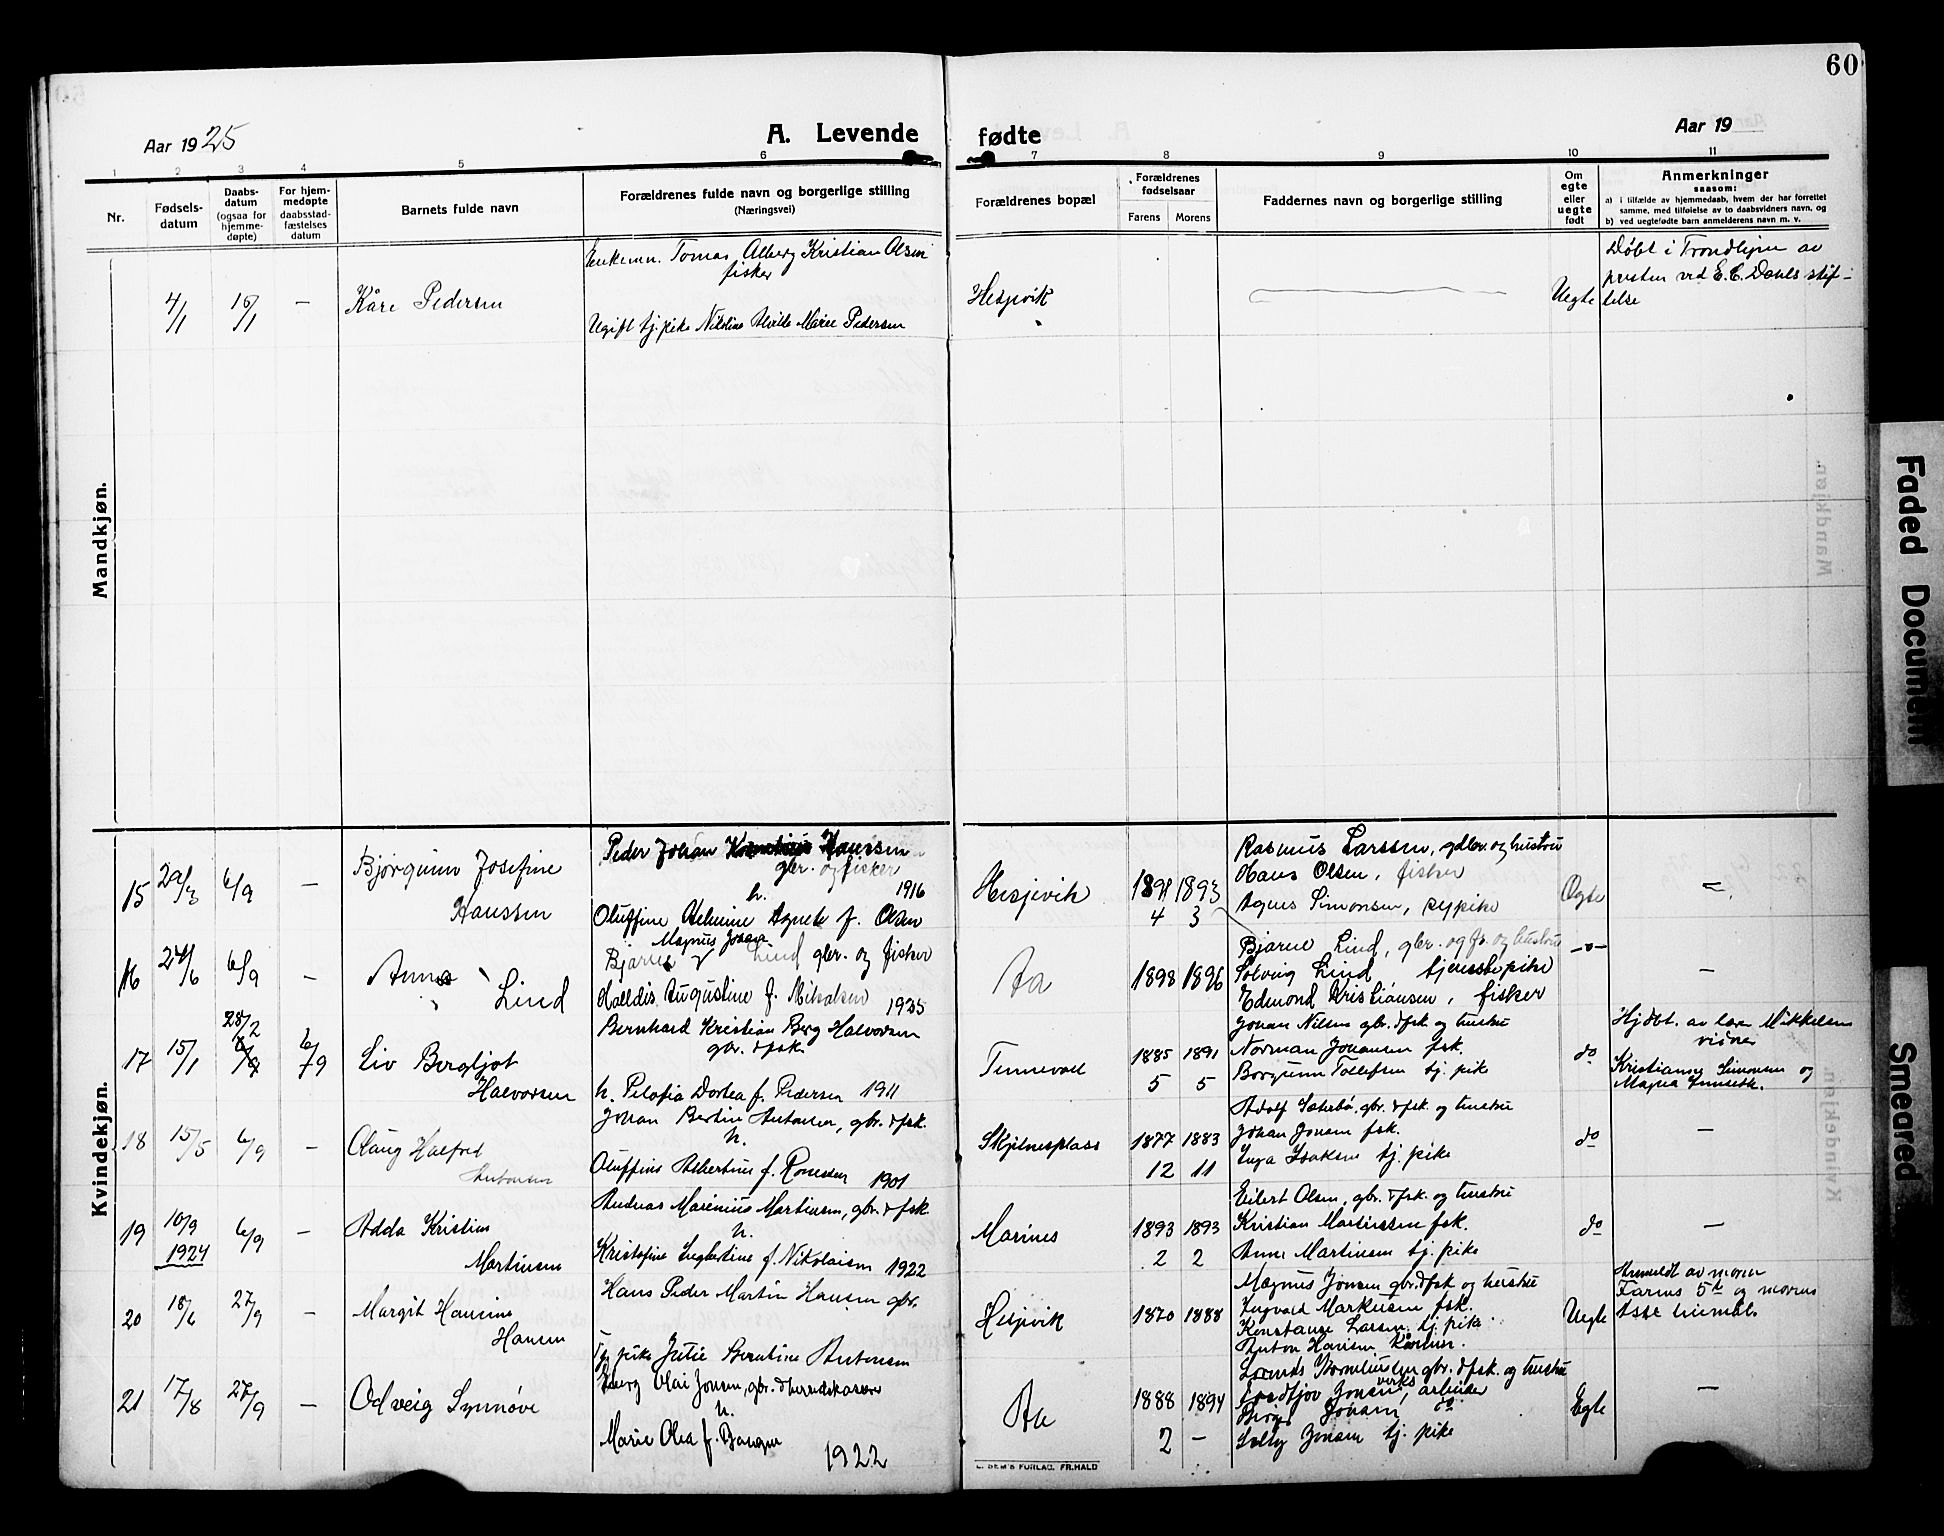 60
Aar 1925
A. Levende fødte
Aar 19
1 2 3 4 5 6 7 8 9 10 11
Nr.
Fødsels-
datum
Daabs-
datum
(ogsaa for
hjemme-
døpte)
For hjem-
medøpte
daabsstad-
fæstelses
datum
Barnets fulde navn
Forældrenes fulde navn og borgerlige stilling
(Næringsvei)
Forældrenes bopæl
Forældrenes
fødselsaar
Farens Morens
Faddernes navn og borgerlige stilling
Om
egte
eller
uegte
født
Anmerkninger
saasom:
a) i tilfælde av hjemmedaab, hvem der har forrettet
samme, med tilføielse av to daabsvidners navn, og
b) ved uegtefødte barn anmelderens navn m. v.
Mandkjøn.
4/1 - Kåre Pedersen
Enkem. Tomas Alberg Kristian Olsen
fisker
Ugift tj. pike Nikoline Alvilde Marie Pedersen
Hesjevik
Uegte
Døbt i Trondhjem av
presten ved E. C. Dahls stif-
telse
Kvindekjøn.
15 29/3 6/9 - Bjørgunn Josefine
Hanssen
Peder Johan Hanssen
gbr. og fisker
h. 1916
Oluffine Helmine Agnete f. Olsen
Hesjevik
1891 1893
4 3
Rasmus Larssen, gdbr. og hustru
Hans Olsen, fisker
Agnes Simonsen, sypike
Egte
-
16 24/6 6/9 - Anna
Lind
Magnus Johan
Bjarne Lind gbr. og fisker
Halldis Augustine f. Mikalsen 1925
Aa
1898 1896
Bjarne Lind, gbr. og fs. og hustru
Solveig Lind tjenestepike
Edmond Kristiansen, fisker
-"-
-
17 15/1 28/2 6/9 6/9 Liv Bergljot
Halvorsen
Bernhard Kristian Berg Halvorsen
gbr. & fsk.
h. Pelofia Dortea f. Pedersen 1911
Tennevoll
1885 1891
5 5
Johan Nilsen gbr. & fsk. og hustru
Norman Johansen fsk.
Borgunn Tollefsen tj. pike
do
Hjdbt. av lær. Mikkelsen
Kristianna Simonsen og
18 15/5 6/9 - Olaug Halfrid
Antonsen
Johan Bertin Antonsen, gbr. & fsk.
h.
Oluffine Albertine f. 1901
Skjelnesplass
1877 1883
12 11
Adolf Sæterbø, gbr. & fsk. og hustru
Johan Jonsen fsk.
Inga Isaksen tj. pike
do
-
19 10/9
1924 6/9 - Adda Kristine
Martinsen
Andreas Marenius Martinsen, gbr. & fsk.
h.
Kristofine Engbertine f. Nikolaisen 1922
Marines
1893 1893
2 2
Eilert Olsen, gbr. & fsk. og hustru
Kristian Martinssen fsk.
Anne Martinsen tj. pike
do
-
20 18/6 27/9 - Margit Hansine
Hansen
Hans Peder Martin Hansen gbr.
Tj. pike Julie Berntine Antonsen
Hesjevik
1870 1888
Magnus Jonsen gbr. & fsk og hustru
Ingvald Markusen fsk.
Konstanse Larsen tj. pike
Anton Hansen
Uegte
Anmeldt av moren
Farens 5te og morens
21 17/8 27/9 - Odveig Synnøve
Olai Jensen, gbr. & herredskasserer
h.
Marie Olea f. 1922
Aa
1888 1894
2 -
gbr. & fsk. og hustru
Jonsen, arbeider
Jonsen do
Solby Jonsen tj. pike
Egte
-
E. SEM'S FORLAG. FR.HALD
Faded Document
Smeared